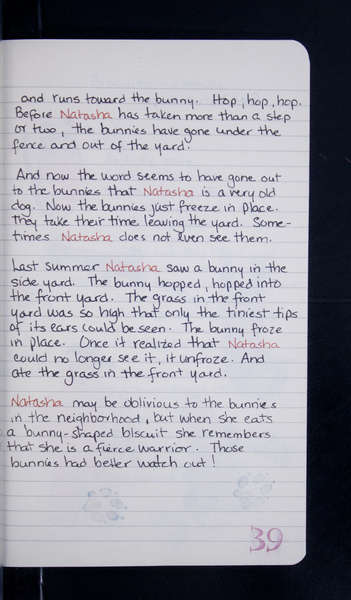 and runs toward the bunny. Hop, hop, hop.
Before Natasha has taken more than a step
or two, the bunnies have gone under the
fence and out of the yard.
And now the word seems to have gone out
to the bunnies that Natasha is a very old
dog. Now the bunnies just freeze in place.
They take their time leaving the yard. Some-
times Natasha does not even see them.
Last summer Natasha saw a bunny in the
side yard. The bunny hopped, hopped into
the front yard. The grass in the front
yard was so high that only the tiniest tips
of its ears could be seen. The bunny froze
in place. Once it realized that Natasha
could no longer see it, it unfroze. And
ate the grass in the front yard.
Natasha may be oblivious to the bunnies
in the neighborhood, but when she eats
a bunny-shaped biscuit she remembers
that she is a fierce warrior. Those
bunnies had better watch out!
39